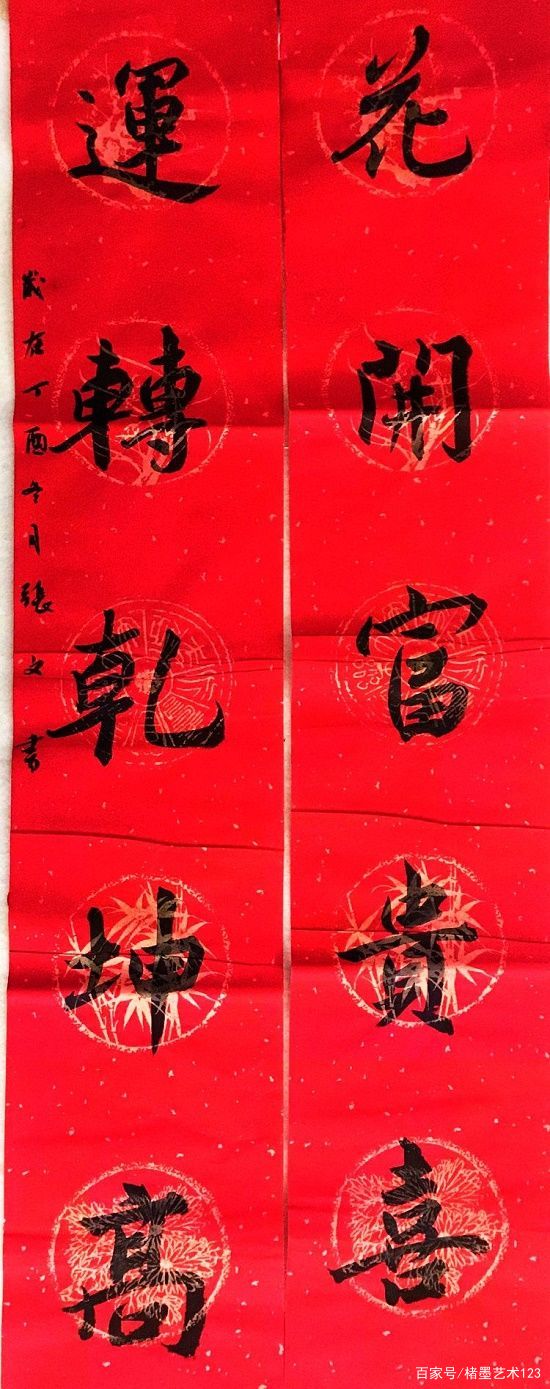 花開富貴喜
運轉乾坤高
歲在丁酉冬月張文書
百家号/楮墨艺术123